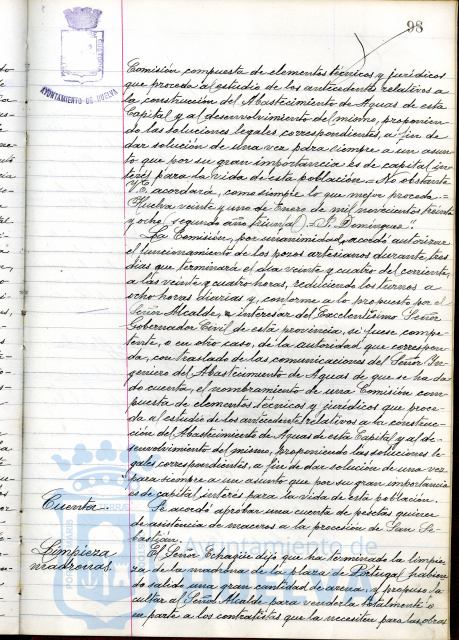 98
AYUNTAMIENTO DE HUELVA
Comisión compuesta de elementos técnicos y jurídicos
que proceda al estudio de los antecedentes relativos a
la construcción del Abastecimiento de Aguas de esta
Capital y al desenvolvimiento del mismo, proponien
do las soluciones legales correspondientes, a fin de
dar solución de una vez para siempre a un asun
to que por su gran importancia es de capital in
terés para la vida de esta población.= No obstante
V.E. acordará, como siempre lo que mejor proceda.=
Huelva veinte y uno de Enero de mil novecientos treinta
y ocho, segundo año triunfal.= J. Domínguez.
La Comisión, por unanimidad, acordó autorizar
el funcionamiento de los pozos artesianos durante tres
días que terminará el día veinte y cuatro del corriente,
a las veinte y cuatro horas, reduciendo los turnos a
ocho horas diarias y, conforme a lo propuesto por el
Señor Alcalde, interesar del Excelentísimo Señor
Gobernador Civil de esta provincia, si fuese compe
tente, o en otro caso, de la autoridad que correspon
da, con traslado de las comunicaciones del Señor In
geniero del Abastecimiento de Aguas de que se ha da
do cuenta, el nombramiento de una Comisión com
puesta de elementos técnicos y jurídicos que proce
da al estudio de los antecedentes relativos a la construc
ción del Abastecimiento de Aguas de esta Capital y al de
senvolvimiento del mismo, proponiendo las soluciones le
gales correspondientes, a fin de dar solución de una vez
para siempre a un asunto que por su gran importancia
es de capital interés para la vida de esta población.
Cuenta.
Se acordó aprobar una cuenta de pesetas quince
de asistencia de maceros a la procesión de San Se
bastián.
Limpieza
madronas.
El Señor Echagüe dijo que ha terminado la limpie
za de la madrona de la plaza de Portugal, habien
do salido una gran cantidad de arena, y propuso fa
cultar al Señor Alcalde para venderla totalmente o
en parte a los contratistas que la necesiten para las obras
Ayuntamiento de